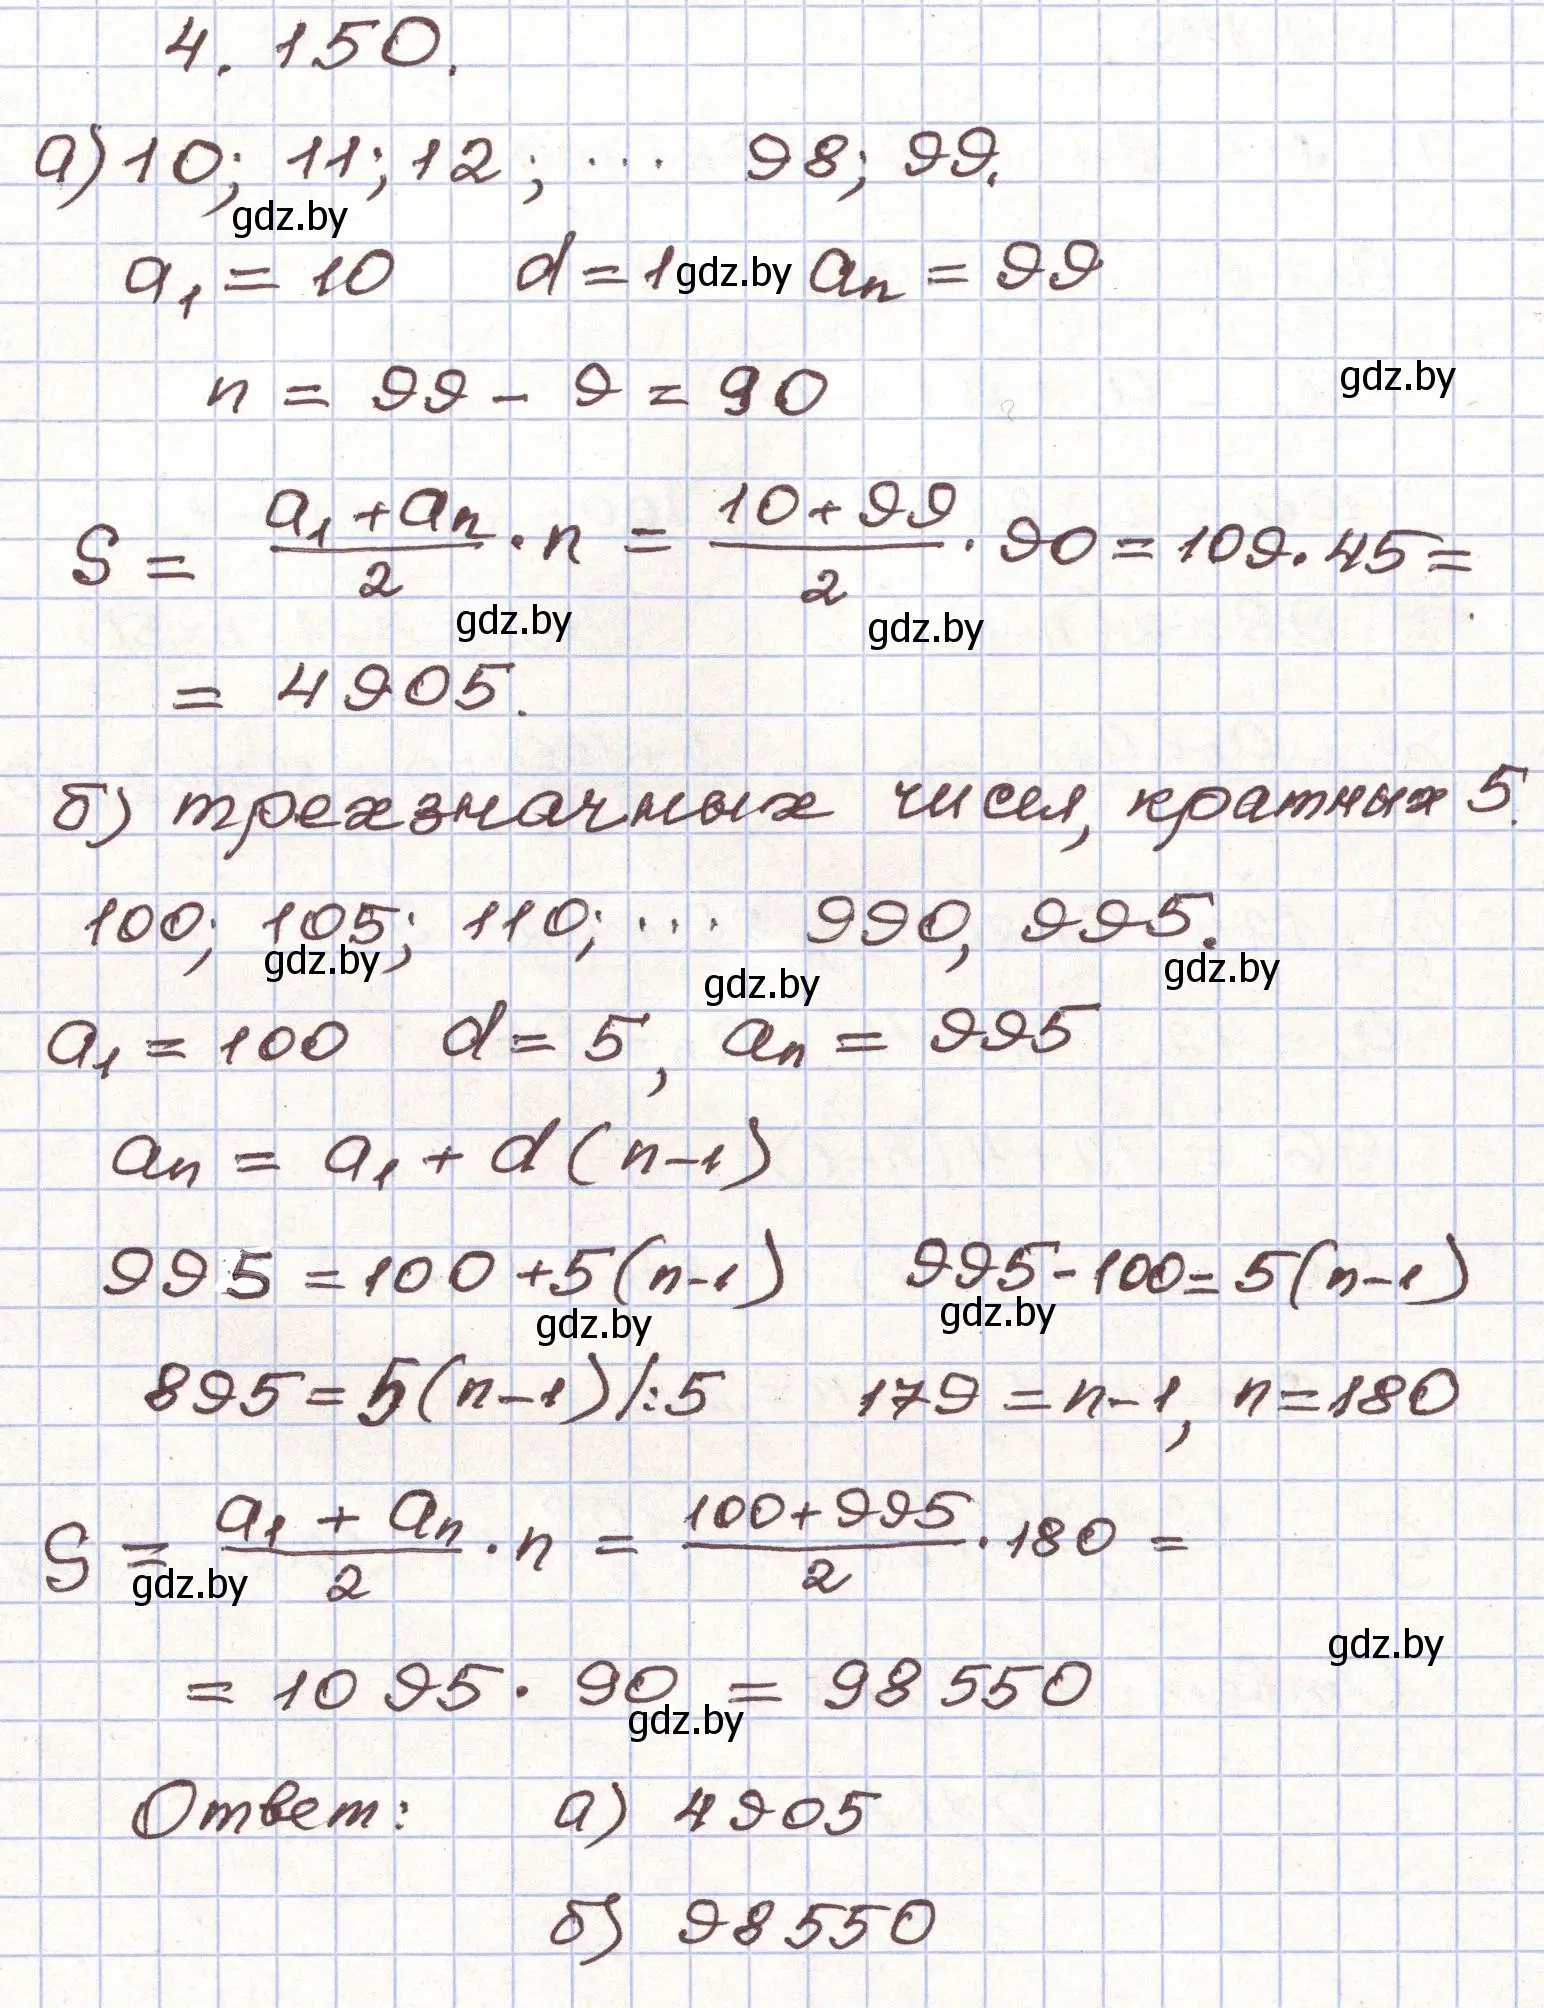 4.150.
а) 10; 11; 12; ... 98; 99.
gdz.by
a₁ = 10 d = 1 gdz.by aₙ = 99
n = 99 - 9 = 90
gdz.by
S = (a₁ + aₙ)/2 · n = (10 + 99)/2 · 90 = 109 · 45 =
gdz.by gdz.by
= 4905.
б) трехзначных чисел, кратных 5.
100; 105; 110; ... 990, 995.
gdz.by gdz.by gdz.by
a₁ = 100 d = 5, aₙ = 995
aₙ = a₁ + d(n-1)
995 = 100 + 5(n-1) 995 - 100 = 5(n-1)
gdz.by gdz.by
895 = 5(n-1) |:5 179 = n-1, n = 180
S = (a₁ + aₙ)/2 · n = (100 + 995)/2 · 180 =
gdz.by
gdz.by
= 1095 · 90 = 98550
gdz.by
Ответ: а) 4905
б) 98550